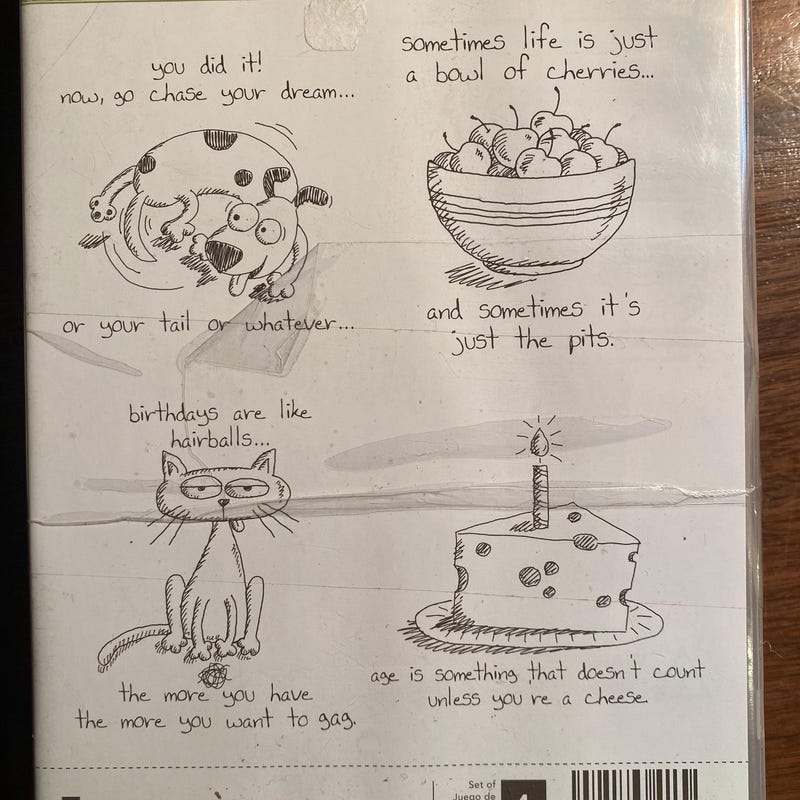 you did it!
now, go chase your dream...
or your tail or whatever...
sometimes life is just
a bowl of cherries...
and sometimes it's
just the pits.
birthdays are like
hairballs...
the more you have
the more you want to gag.
age is something that doesn't count
unless you're a cheese.
Set of
Juego de